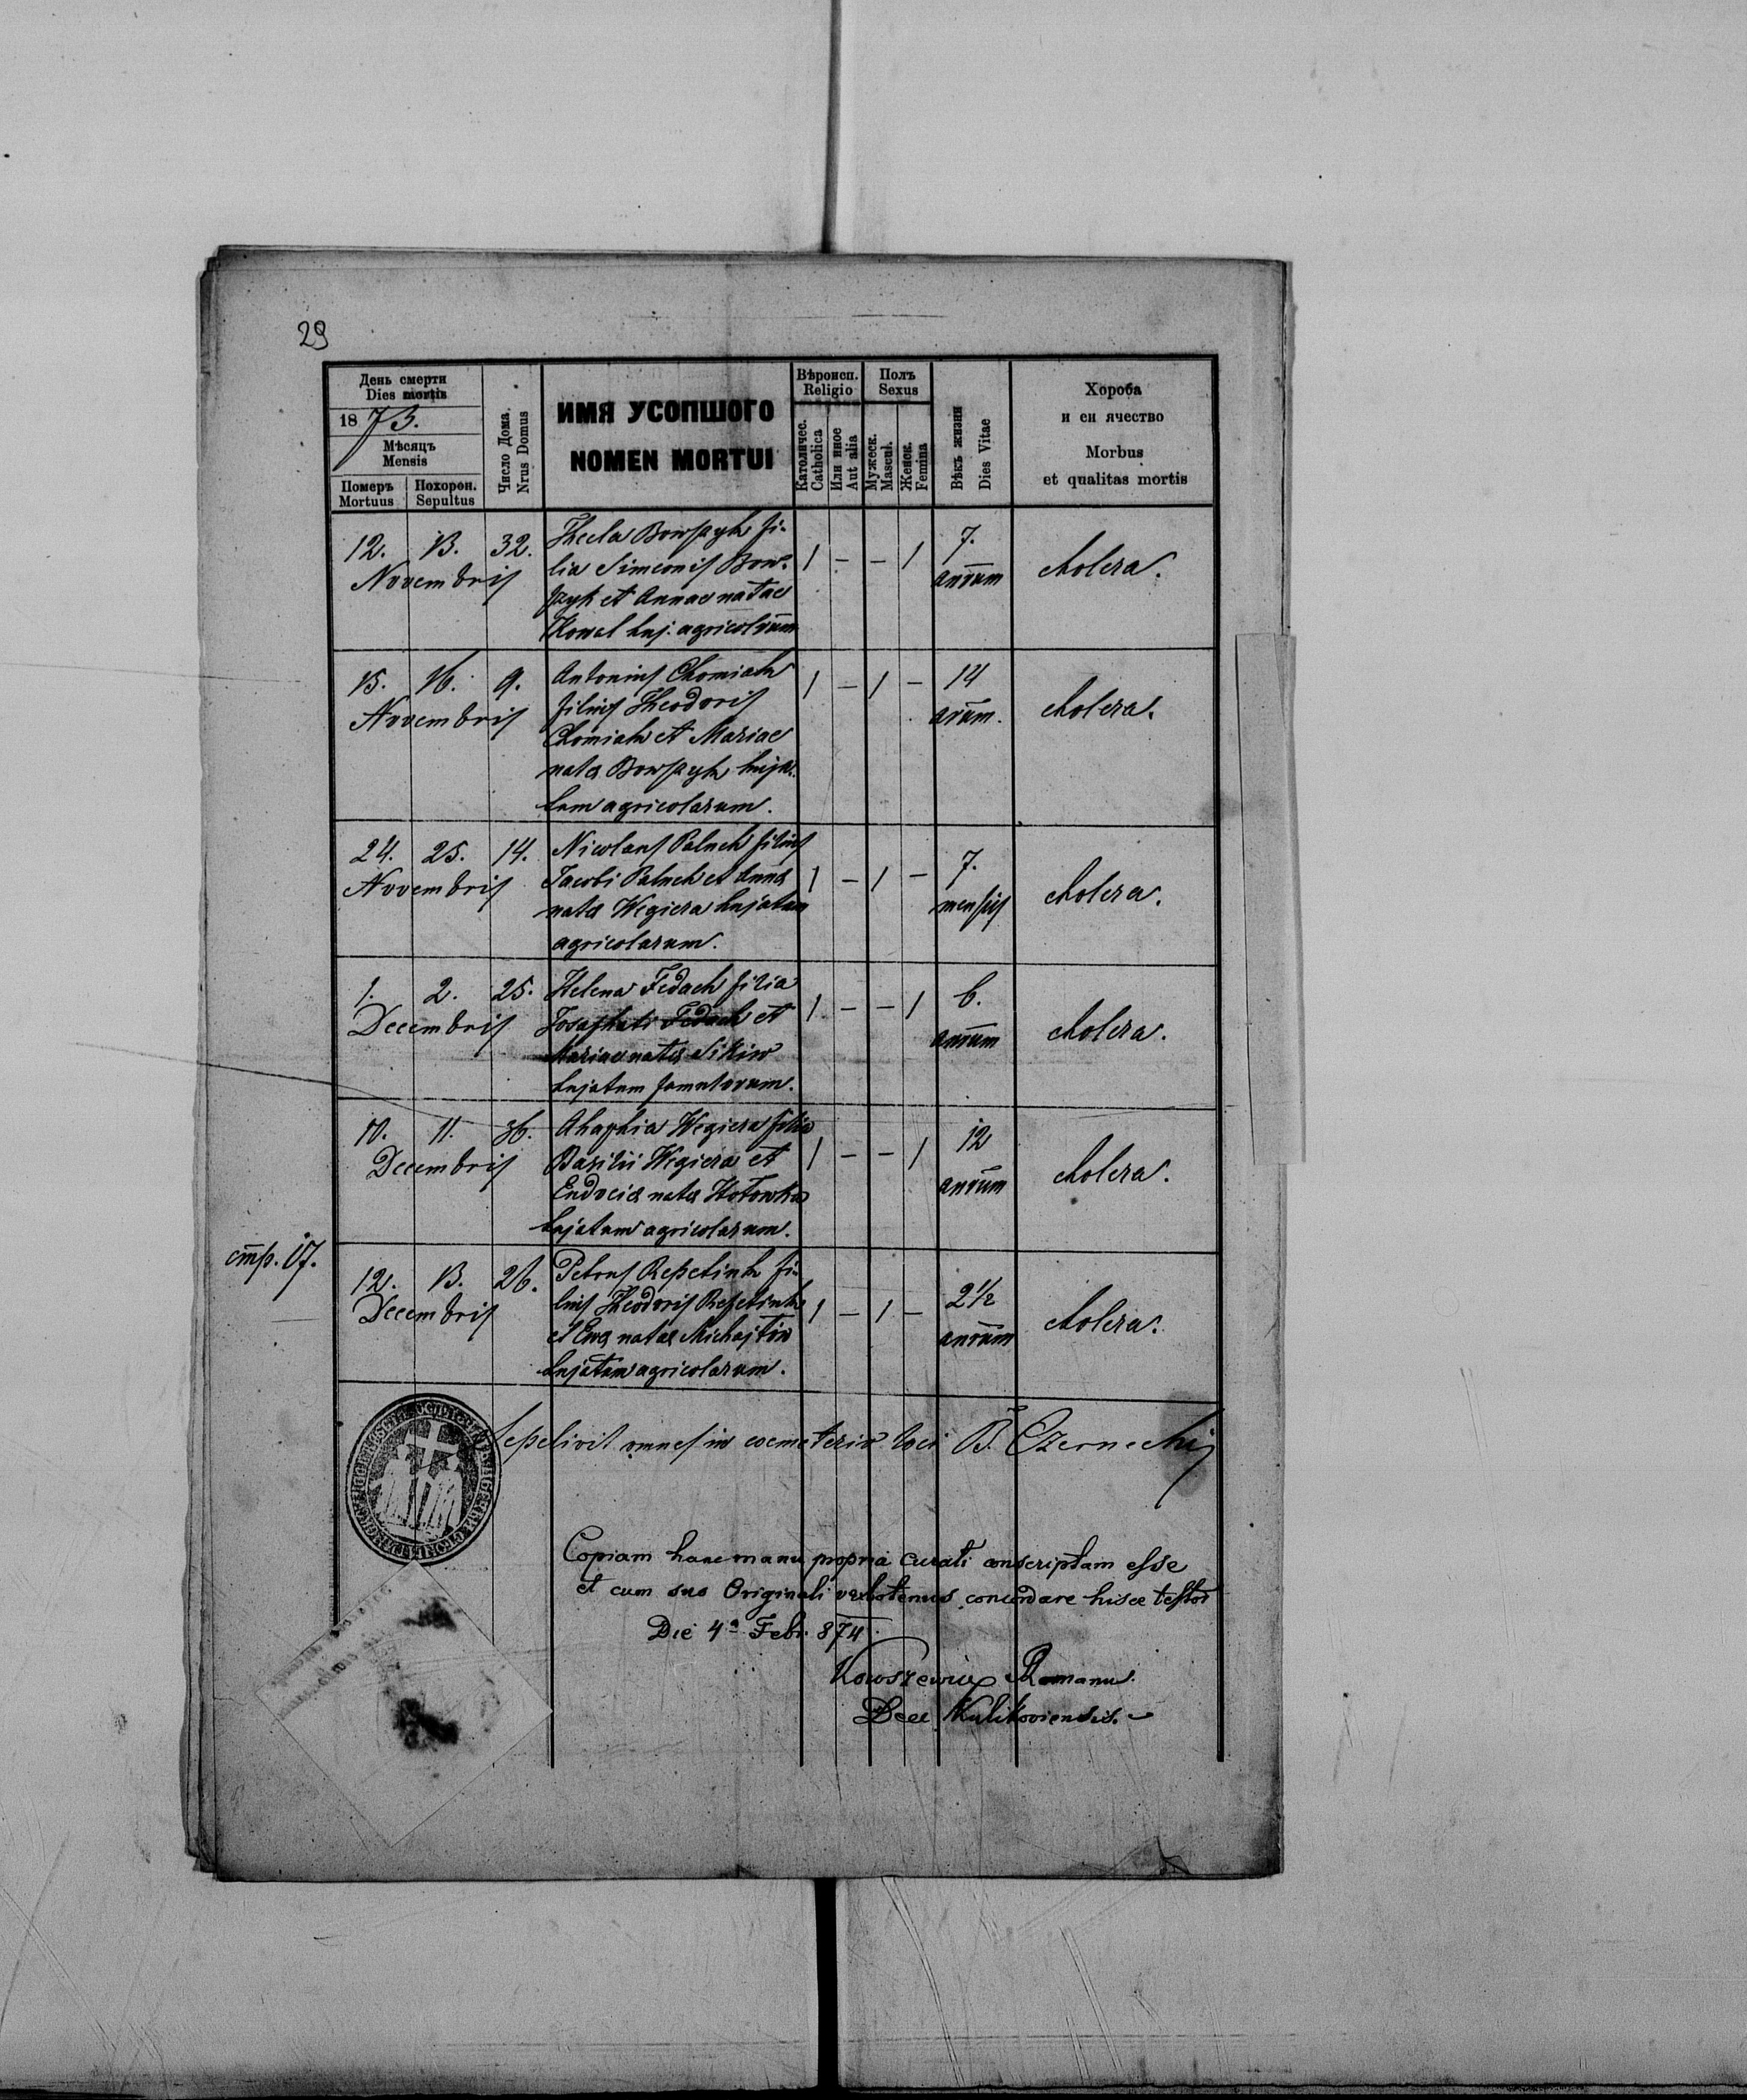 29
День смерти
Dies mortis
1873.
Мѣсяцъ
Mensis
Померъ Похорон.
Mortuus Sepultus
Число Дома.
Nrus Domus
ИМЯ УСОПШОГО
NOMEN MORTUI
Вѣроисп.
Religio
Католичес.
Catholica
Или иное
Aut alia
Полъ
Sexus
Мужеск.
Mascul.
Женск.
Femina
Вѣкъ жизни
Dies Vitae
Хороба
и еи ячество
Morbus
et qualitas mortis
12. 13. 32.
Novembris
Thecla Bowszyk fi-
lia Simeonis Bow-
szyk et Annae natae
Kowal huj. agricolarum
1 - - 1
7.
annum
cholera.
15. 16. 9.
Novembris
Antonius Chomiak
filius Theodoris
Chomiak et Mariae
nata Bowszyk hujá-
tum agricolarum.
1 - 1 -
14
anum.
cholera.
24. 25. 14.
Novembris
Nicolaus Paluch filius
Jacobi Paluch et Anna
nata Wegiera hujatum
agricolarum.
1 - 1 -
7.
mensis
cholera.
1. 2. 25.
Decembris
Helena Fedach filia
Josaphati Fedach et
Mariae nata Sikiw
hujatum famulorum.
1 - - 1
6.
annum
cholera.
10. 11. 36.
Decembris
Ahaphia Wegiera filia
Basilii Wegiera et
Eudocia nata Hołowka
hujatum agricolarum.
1 - - 1
12
annum
cholera.
стр. 17.
12. 13. 26.
Decembris
Petrus Repetiuk fi-
lius Theodoris Repetiuk
et Eva natae Michajłiw
hujatum agricolarum.
1 - 1 -
2 1/2
annum
cholera.
Sepelivit omnes in coemeterio loci B. Czernecki
Copiam hanc manu propria curati conscriptam esse
et cum suo Originali verbotenus concordare hisce testor
Die 4a Febr. 874.
Romanus
Dec Kulikoviensis.